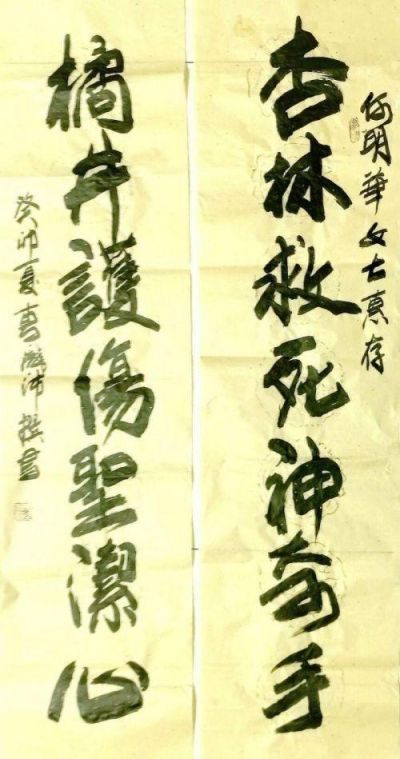 何明華女士惠存
杏林救死神奇手
橘井護傷聖潔心
癸卯夏書 沛撰書